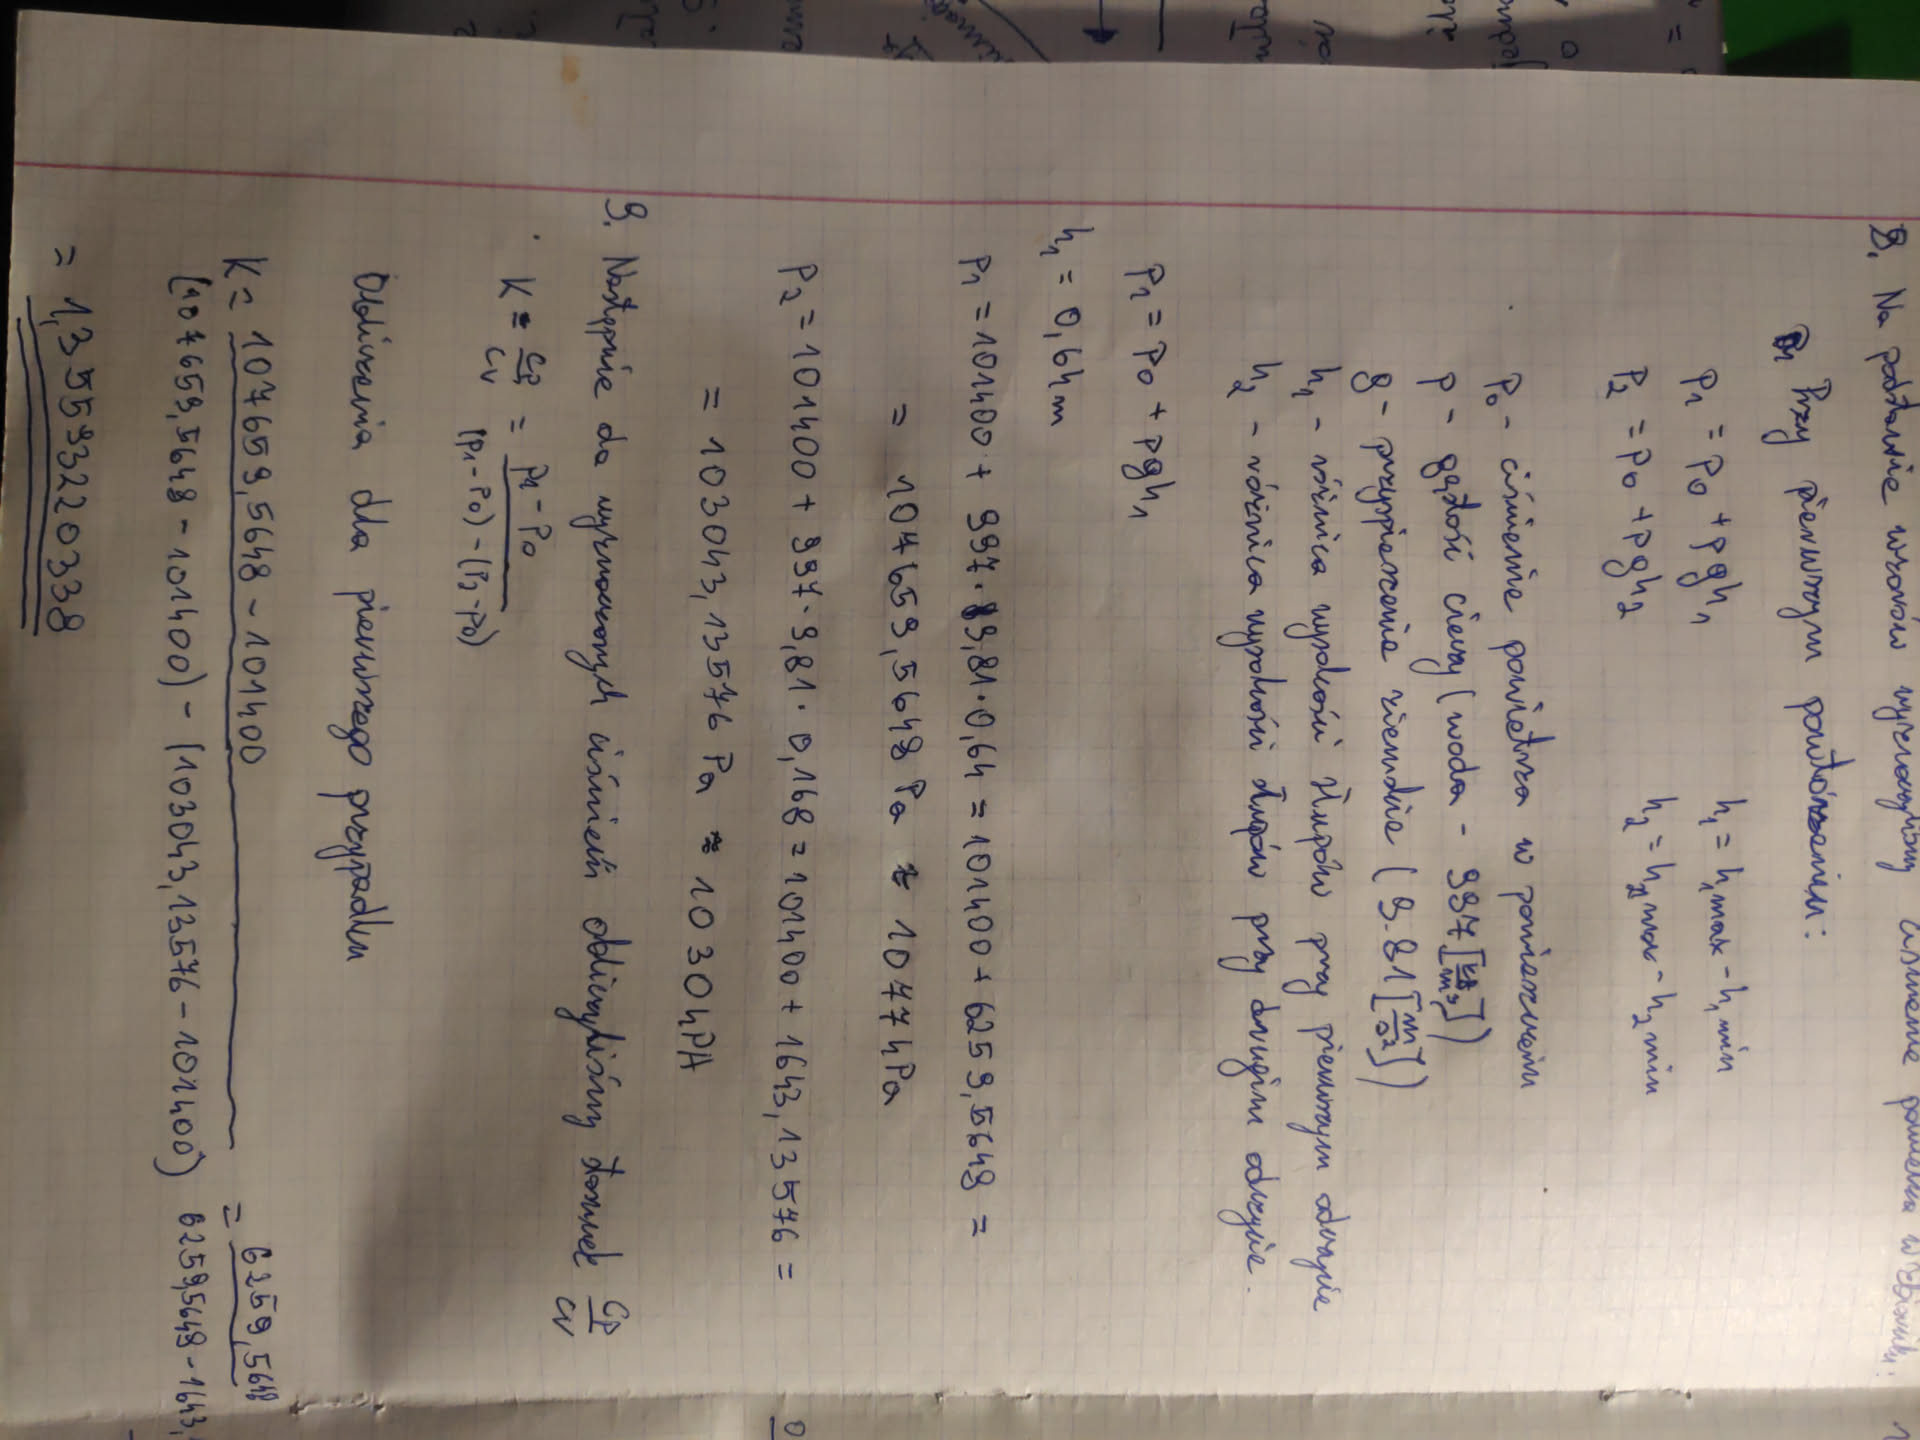 8. Na podstawie wzorów wyznaczyliśmy ciśnienie powietrza w zbiorniku:
Przy pierwszym powtórzeniu:
P₁ = P₀ + ρgh₁ h₁ = h₁max - h₁min
P₂ = P₀ + ρgh₂ h₂ = h₂max - h₂min
P₀ - ciśnienie powietrza w pomieszczeniu
ρ - gęstość cieczy (woda - 997 [kg/m³])
g - przyspieszenie ziemskie (9.81 [m/s²])
h₁ - różnica wysokości słupów przy pierwszym odczycie
h₂ - różnica wysokości słupów przy drugim odczycie.
P₁ = P₀ + ρgh₁
h₁ = 0,64m
P₁ = 101400 + 997 · 9,81 · 0,64 = 101400 + 6259,5648 =
= 107659,5648 Pa ≈ 1077 hPa
P₂ = 101400 + 997 · 9,81 · 0,168 = 101400 + 1643,13576 =
= 103043,13576 Pa ≈ 1030 hPA
9. Następnie do wyznaczonych ciśnień obliczyliśmy stosunek Cp/Cv
K = Cp/Cv = (P₁ - P₀)/((P₁ - P₀) - (P₂ - P₀))
Obliczenia dla pierwszego przypadku
K = (107659,5648 - 101400)/((107659,5648 - 101400) - (103043,13576 - 101400)) = 6259,5648/6259,5648 - 1643,
= 1,35593220338